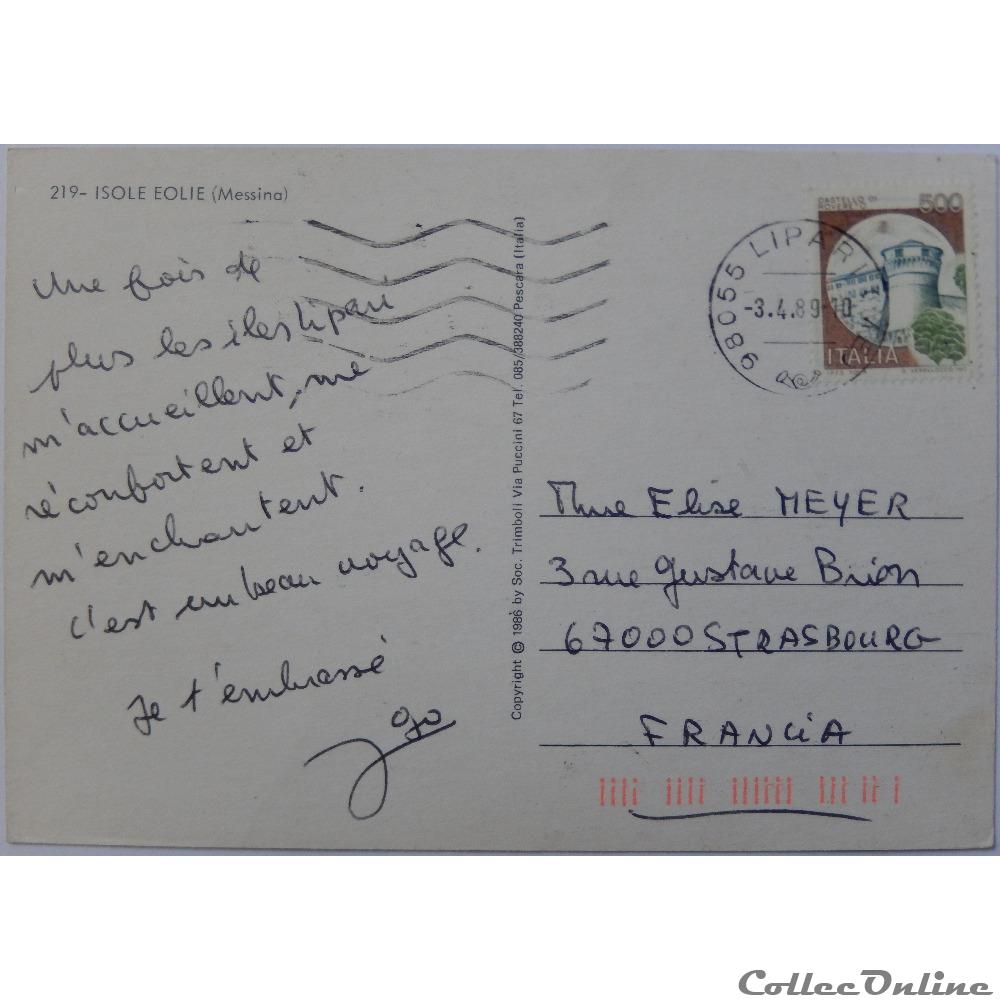 219- ISOLE EOLIE (Messina)
Une fois de
plus les îles Lipari
m'accueillent, me
réconfortent et
m'enchantent.
C'est un beau voyage.
Je t'embrasse
Copyright © 1986 by Soc. Trimboli Via Puccini 67 Tel. 085/388240 Pescara (Italia)
98055 LIPARI
-3.4.89-10
CASTELLO DI
ROVERETO
500
ITALIA
Mme Elise MEYER
3 rue Gustave Brion
67000 STRASBOURG
FRANCIA
CollecOnline